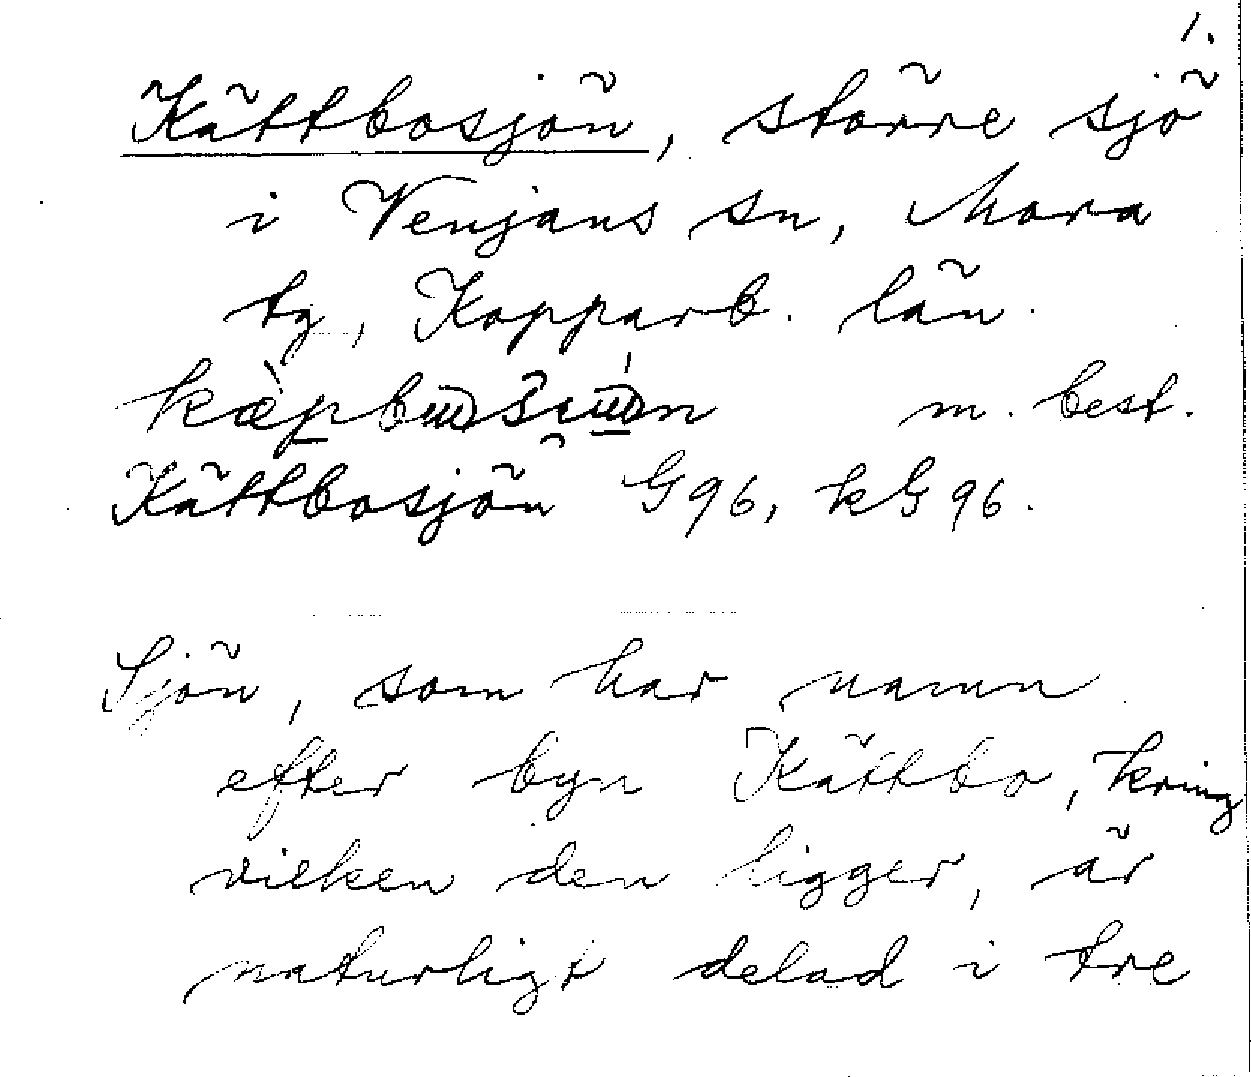 1.
Kättbosjön, större sjö
i Venjans sn, Mora
tg, Kopparb. län.
m. best.
Kättbosjön G96, kG96.
Sjön, som har namn
efter byn Kättbo, kring
vilken den ligger, är
naturligt delad i tre